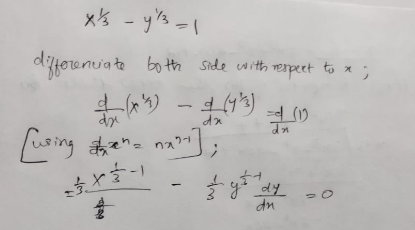 x^{1/3} - y^{1/3} = 1
differenciate both side with respect to x ;
d/dx (x^{1/3}) - d/dx (y^{1/3}) = d/dx (1)
[using d/dx x^n = nx^{n-1}] ;
= 1/3 x^{1/3 - 1} - 1/3 y^{1/3 - 1} dy/dx = 0